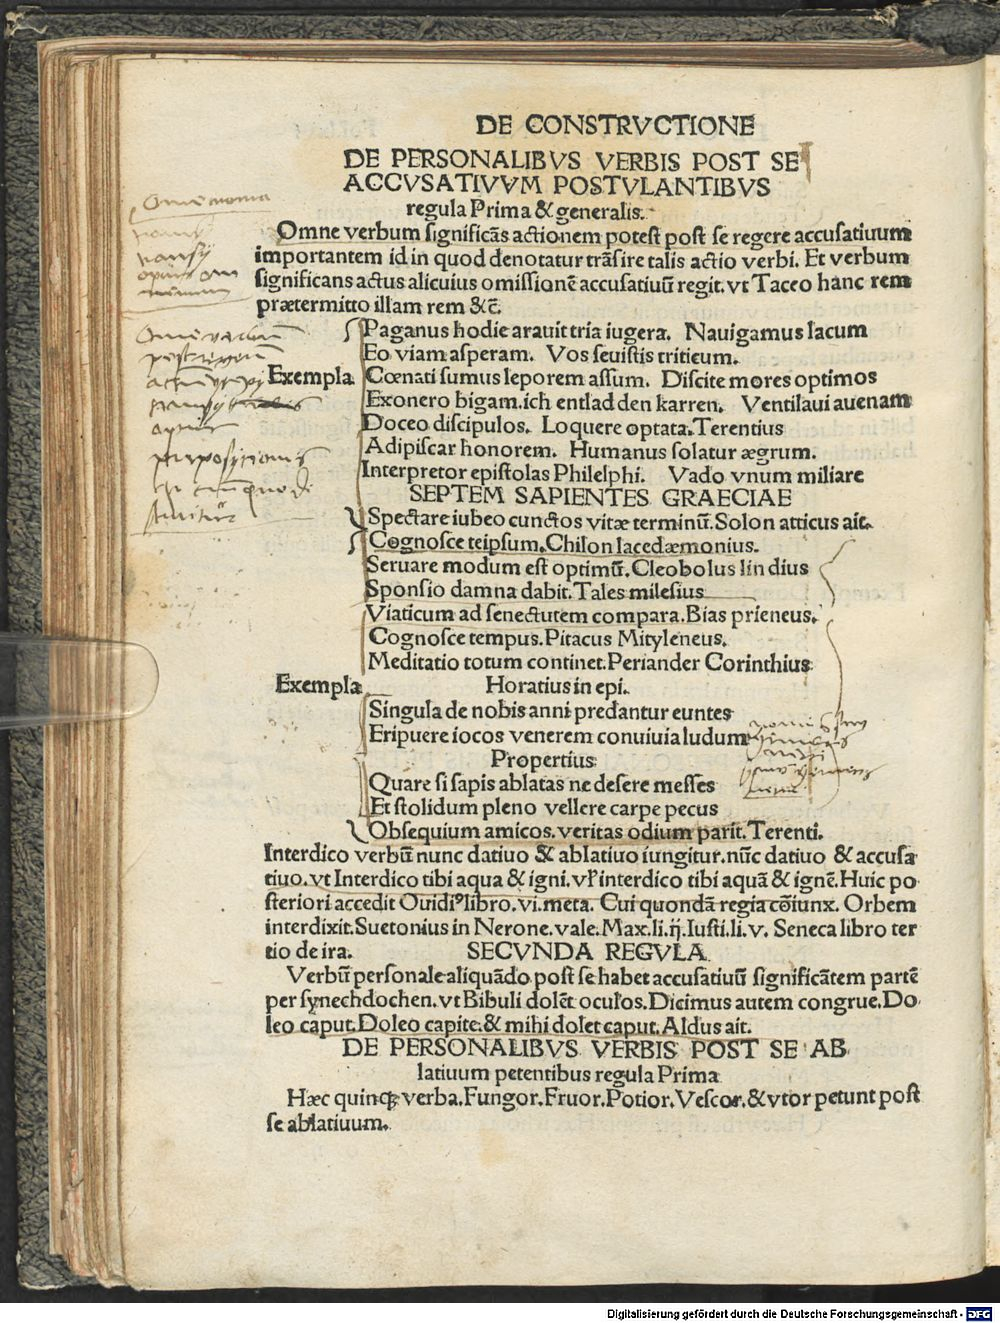 DE CONSTRVCTIONE
DE PERSONALIBVS VERBIS POST SE
ACCVSATIVVM POSTVLANTIBVS
regula Prima & generalis.
Omne verbum significãs actionem potest post se regere accusatiuum
importantem id in quod denotatur trãsire talis actio verbi. Et verbum
significans actus alicuius omissionẽ accusatiuũ regit. vt Taceo hanc rem
prætermitto illam rem &c̃.
Paganus hodie arauit tria iugera. Nauigamus lacum
Eo viam asperam. Vos seuistis triticum.
Exempla Cœnati sumus leporem assum. Discite mores optimos
Exonero bigam. ich entlad den karren. Ventilaui auenam
Doceo discipulos. Loquere optata. Terentius
Adipiscar honorem. Humanus solatur ægrum.
Interpretor epistolas Philelphi. Vado vnum miliare
SEPTEM SAPIENTES GRAECIAE
Spectare iubeo cunctos vitæ terminũ. Solon atticus ait.
Cognosce teipsum. Chilon lacedæmonius.
Seruare modum est optimũ. Cleobolus lin dius
Sponsio damna dabit. Tales milesius
Viaticum ad senectutem compara. Bias prieneus.
Cognosce tempus. Pitacus Mityleneus.
Meditatio totum continet. Periander Corinthius
Exempla Horatius in epi.
Singula de nobis anni predantur euntes
Eripuere iocos venerem conuiuia ludum
Propertius
Quare si sapis ablatas ne desere messes
Et stolidum pleno vellere carpe pecus
Obsequium amicos. veritas odium parit. Terenti.
Interdico verbũ nunc datiuo & ablatiuo iungitur. nũc datiuo & accusa
tiuo. vt Interdico tibi aqua & igni. vl' interdico tibi aquã & ignẽ. Huic po
steriori accedit Ouidiꝰ libro. vi. meta. Cui quondã regia cõiunx. Orbem
interdixit. Suetonius in Nerone. vale. Max. li. ij. Iusti. li. v. Seneca libro ter
tio de ira. SECVNDA REGVLA
Verbũ personale aliquãdo post se habet accusatiuũ significãtem partẽ
per synechdochen. vt Bibuli dolẽt oculos. Dicimus autem congrue. Do
leo caput. Doleo capite. & mihi dolet caput. Aldus ait.
DE PERSONALIBVS VERBIS POST SE AB
latiuum petentibus regula Prima
Hæc quinqꝫ verba. Fungor. Fruor. Potior. Vescor. & vtor petunt post
se ablatiuum.
Digitalisierung gefördert durch die Deutsche Forschungsgemeinschaft - DFG